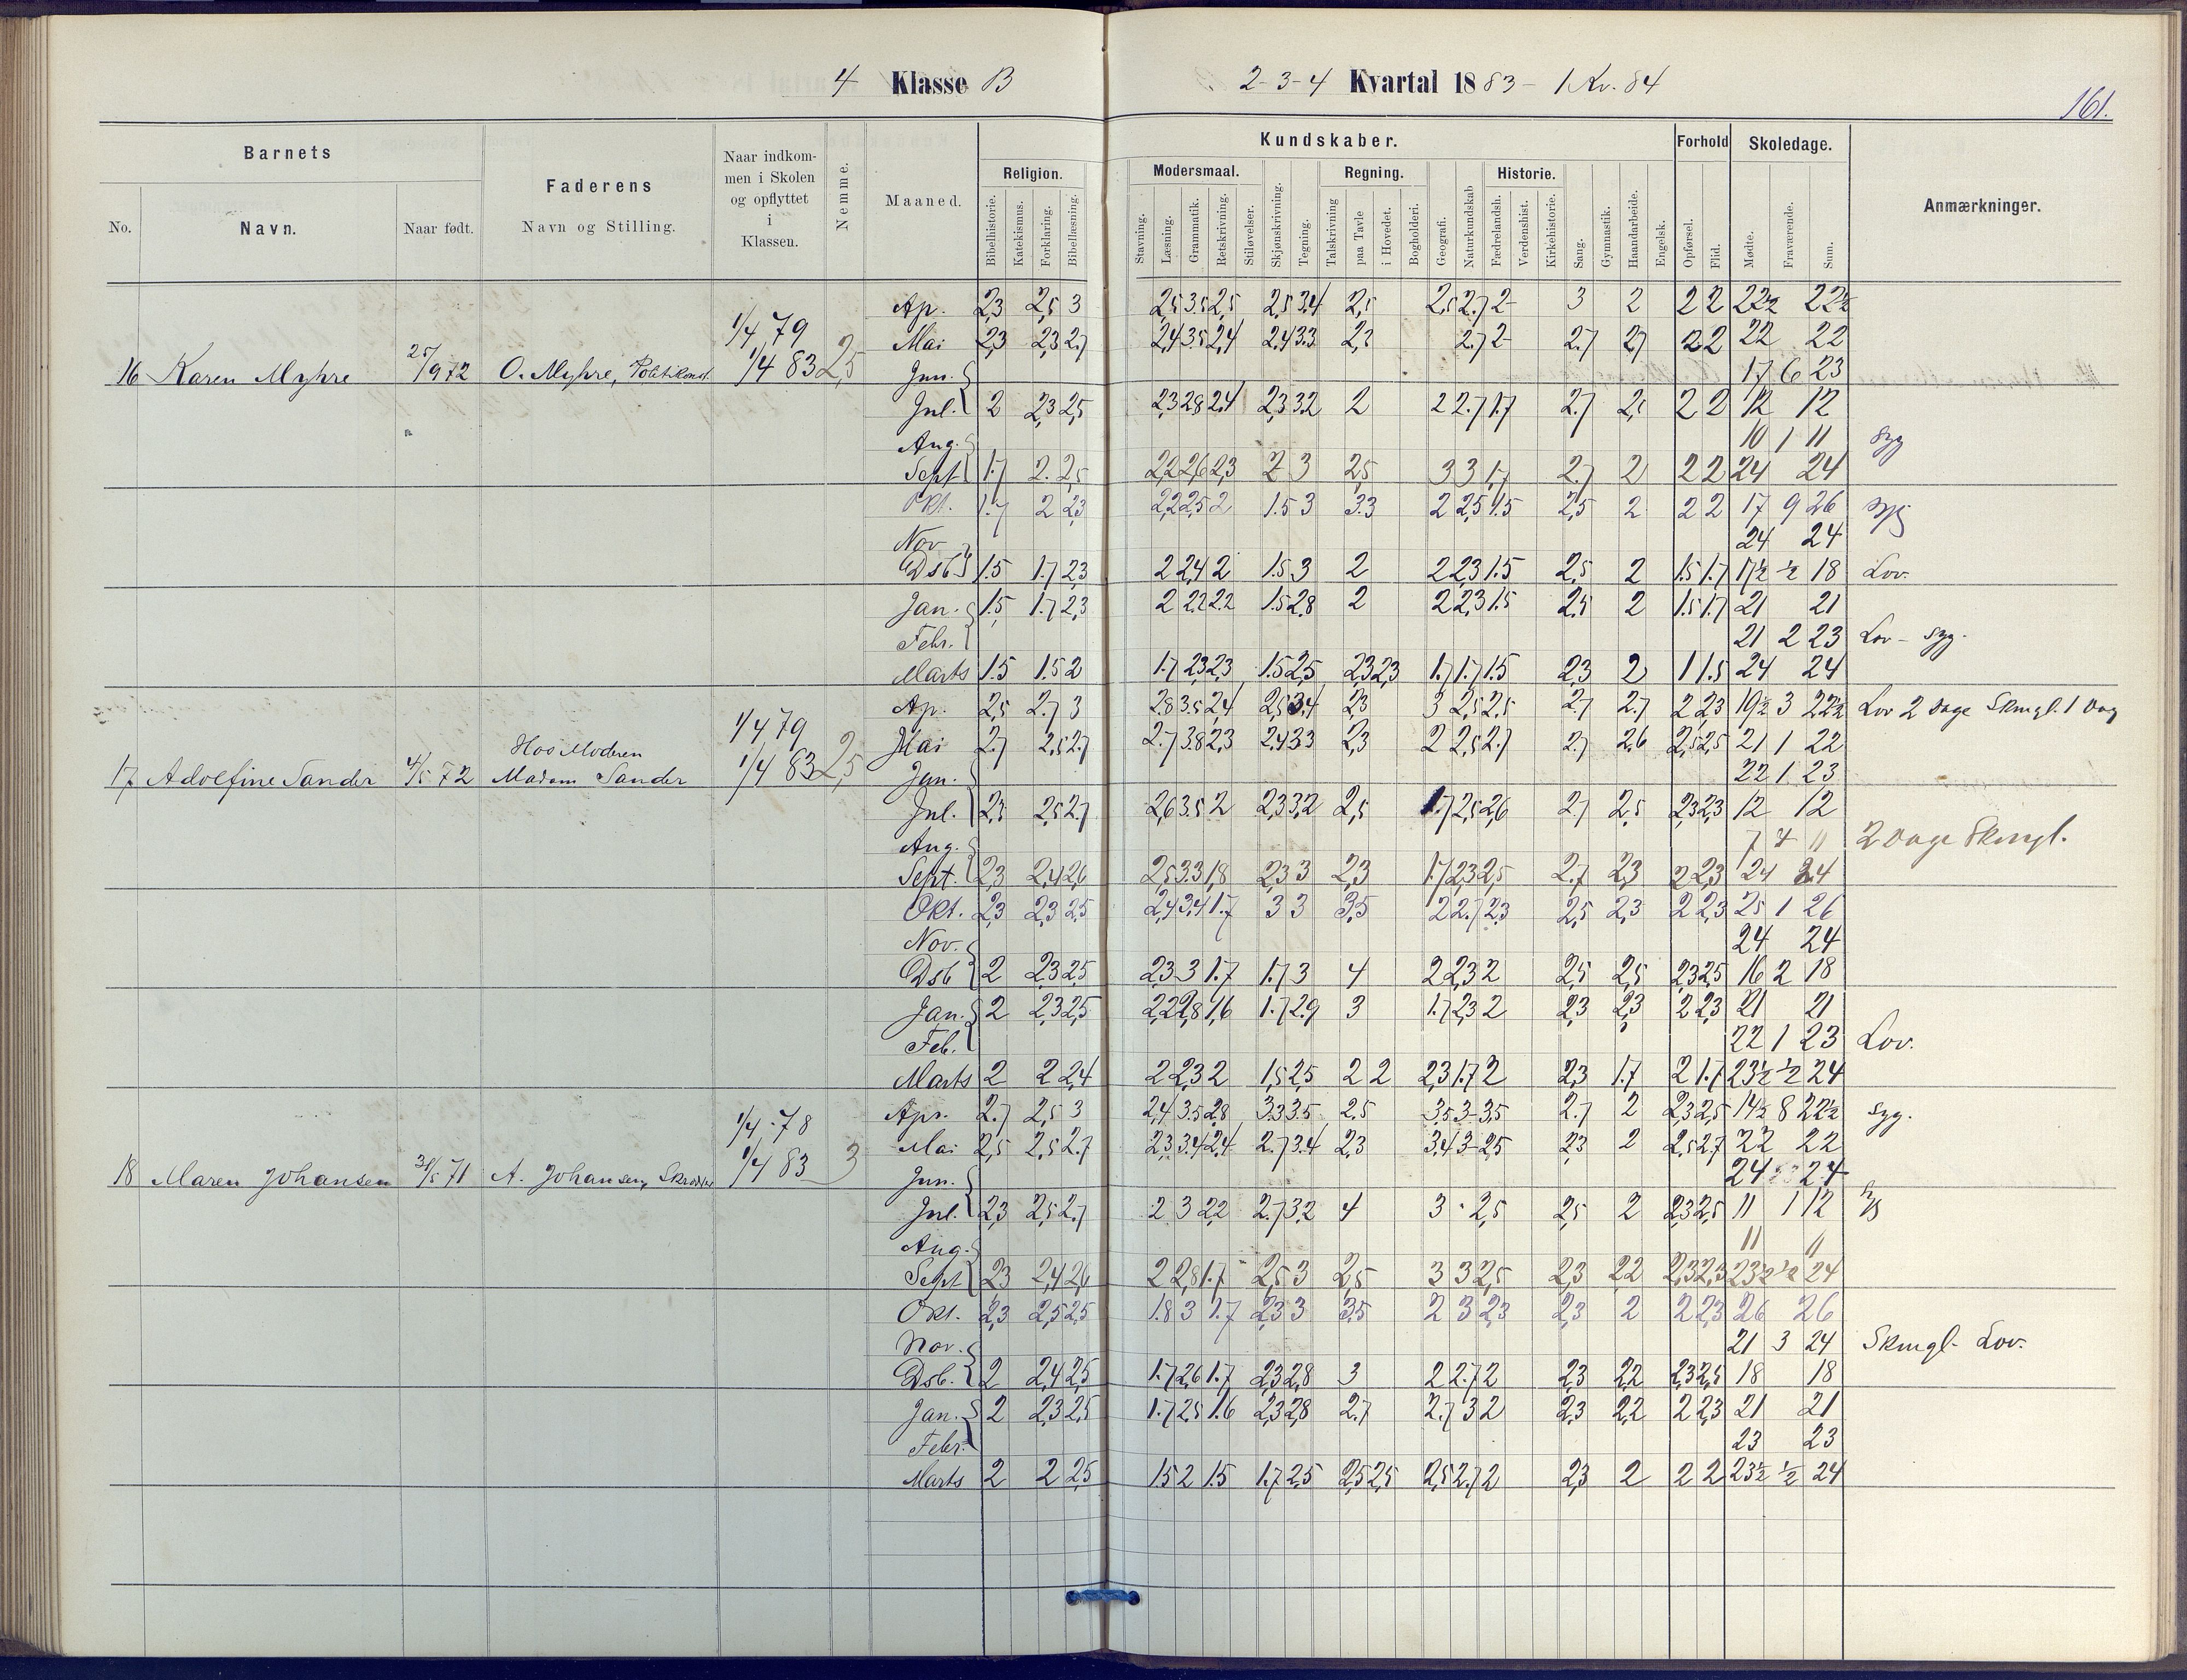 4 Klasse B
2-3-4 Kvartal 1883 - 1 Kv. 84
161.
Barnets
Faderens
Naar indkommen i Skolen og opflyttet i Klassen.
Nemme.
Maaned.
Kundskaber.
Forhold
Skoledage.
Anmærkninger.
Religion.
Modersmaal.
Regning.
Historie.
No.
Navn.
Naar født.
Navn og Stilling.
Bibelhistorie.
Katekismus.
Forklaring.
Bibellæsning.
Stavning.
Læsning.
Grammatik.
Retskrivning.
Stiløvelser.
Skjønskrivning.
Tegning.
Talskrivning
paa Tavle
i Hovedet.
Bogholderi.
Geografi.
Naturkundskab
Fædrelandsh.
Verdenshist.
Kirkehistorie.
Sang.
Gymnastik.
Haandarbeide.
Engelsk.
Opførsel.
Flid.
Mødte.
Fraværende.
Sum.
16 Karen Myhre 25/9 72 O. Myhre, Politikonst. 1/4 79 1/4 83 2,5
Ap. 2,3 2,5 3 2,5 3.5 2,5 2,5 3,4 2,5 2,5 2.7 2- 3 2 2 2 22½ 22½
Mai 2,3 2,3 2.7 2,4 3.5 2,4 2.4 3.3 2,3 2.7 2- 2.7 2 2 22 22
Jun. 17 6 23
Jul. 2 2,3 2,5 2,3 2.8 2,4 2,3 3.2 2 2 2.7 1.7 2.7 2 2 12 12
Aug. 10 1 11 syg
Sept 1.7 2. 2,5 2,2 2,6 2,3 2 3 2,5 3 3 1,7 2.7 2 2 2 24 24
Okt. 1.7 2 2,3 2,2 2,5 2 1.5 3 3.3 2 2,5 1.5 2,5 2 2 2 17 9 26 syg
Nov 24 24
Dsb 1.5 1.7 2,3 2 2,4 2 1.5 3 2 2 2,3 1.5 2,5 2 1.5 1.7 17½ ½ 18 Lov.
Jan. 1.5 1.7 2,3 2 2.2 2.2 1.5 2.8 2 2 2,3 1.5 2,5 2 1.5 1.7 21 21
Febr. 21 2 23 Lov - syg.
Marts 1.5 1.5 2 1.7 2,3 2,3 1.5 2,5 2,3 2,3 1.7 1.7 1.5 2,3 2 1 1.5 24 24
17 Adolfine Sander 4/5 72 Hos Moderen Madam Sander 1/4 79 1/4 83 2,5
Ap. 2,5 2.7 3 2.8 3.5 2,4 2,5 3,4 2,3 3 2,5 2,5 2.7 2.7 2 2,3 19½ 3 22½ Lov 2 Dage Skmgl. 1 Dag
Mai 2.7 2,5 2.7 2.7 3.8 2,3 2.4 3.3 2,3 2 2,5 2.7 2.7 2.6 2,5 2,5 21 1 22
Jun. 22 1 23
Jul. 2,5 2,5 2.7 2,6 3.5 2 2,3 3,2 2,5 1.7 2,5 2,6 2.7 2,5 2,3 2,3 12 12
Aug. 7 4 11 2 Dage Skmgl.
Sept. 2,3 2,4 2,6 2,5 3.3 1,8 2,3 3 2,3 1.7 2,3 2,5 2.7 2,3 2 2,3 24 24
Okt. 2,3 2,3 2,5 2,4 3,4 1.7 3 3 3,5 2 2.7 2,3 2,5 2,3 2 2,3 25 1 26
Nov. 24 24
Dsb 2 2,3 2,5 2,3 3 1.7 1.7 3 4 2 2,3 2 2,5 2,5 2,3 2,5 16 2 18
Jan. 2 2,3 2,5 2,2 2,8 1,6 1.7 2.9 3 1.7 2,3 2 2,3 2,3 2 2,3 21 21
Feb. 22 1 23 Lov.
Marts 2 2 2,4 2 2,3 2 1,5 2,5 2 2 2,3 1.7 2 2,3 1.7 2 1.7 23½ ½ 24
18 Maren Johansen 31/5 71 A. Johansen, Skrædder 1/4 78 1/4 83 3
Apr. 2.7 2,5 3 2,4 3.5 2,8 3.3 3.5 2,5 3.5 3- 3.5 2.7 2 2,3 2,5 14½ 8 22½ syg.
Mai 2,5 2,5 2.7 2,3 3.4 2,4 2.7 3.4 2,3 3.4 3- 2,5 2,3 2 2,5 2.7 22 22
Jun. 24 24
Jul. 2,3 2,5 2.7 2 3 2,2 2.7 3,2 4 3 2,5 2,5 2 2,3 2,5 11 1 12
Aug. 11 11
Sept 2,3 2,4 2,6 2 2,8 1.7 2,5 3 2,5 3 3 2,5 2,3 2,2 2,3 2,3 23½ ½ 24
Okt. 2,3 2,5 2,5 1.8 3 1.7 2,3 3 3,5 2 3 2,3 2,3 2 2 2,3 26 26
Nov. 21 3 24 Skmgl- Lov.
Dsb. 2 2,4 2,5 1.7 2,6 1.7 2,3 2,8 3 2 2.7 2 2,3 2,2 2,3 2,5 18 18
Jan. 2 2,3 2,5 1.7 2,5 1.6 2,3 2,8 2.7 2.7 3 2 2,3 2,2 2 2,3 21 21
Febr. 23 23
Marts 2 2 2,5 1.5 2 1.5 1.7 2,5 2,5 2,5 2,5 2.7 2 2,3 2 2 2 23½ ½ 24